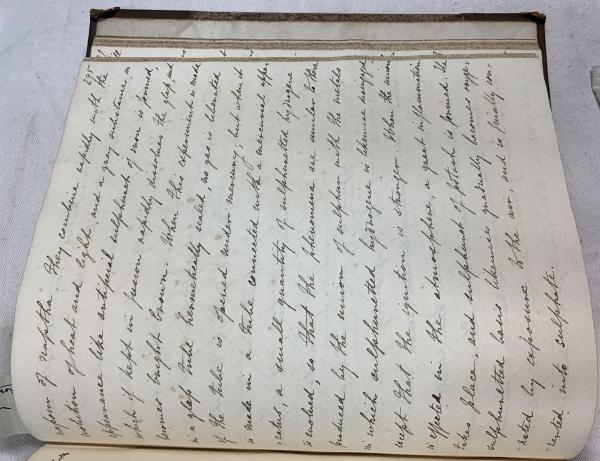 295
vapour of naphtha they combine rapidly with the
evolution of heat and light, and a grey substance, in
appearance like artificial sulphuret of iron is formed,
which if kept in fusion rapidly dissolves the glass and
becomes bright brown. When this experiment is made
in a glass tube hermetically sealed, no gas is liberated
if the tube is opened under mercury, but when it
is made in a tube connected with a mercurial appa-
-ratus, a small quantity of sulphuretted hydrogene
is evolved, so that the phenomena are similar to those
produced by the union of sulphur with the metals
in which sulphuretted hydrogene is likewise disengaged
except that the ignition is stronger. When the union
is effected in the atmosphere, a great inflammation
takes place, and sulphuret of potash is formed. The
sulphuretted basis likewise gradually becomes oxyge-
-nated by exposure to the air, and is finally con-
-verted into sulphate.